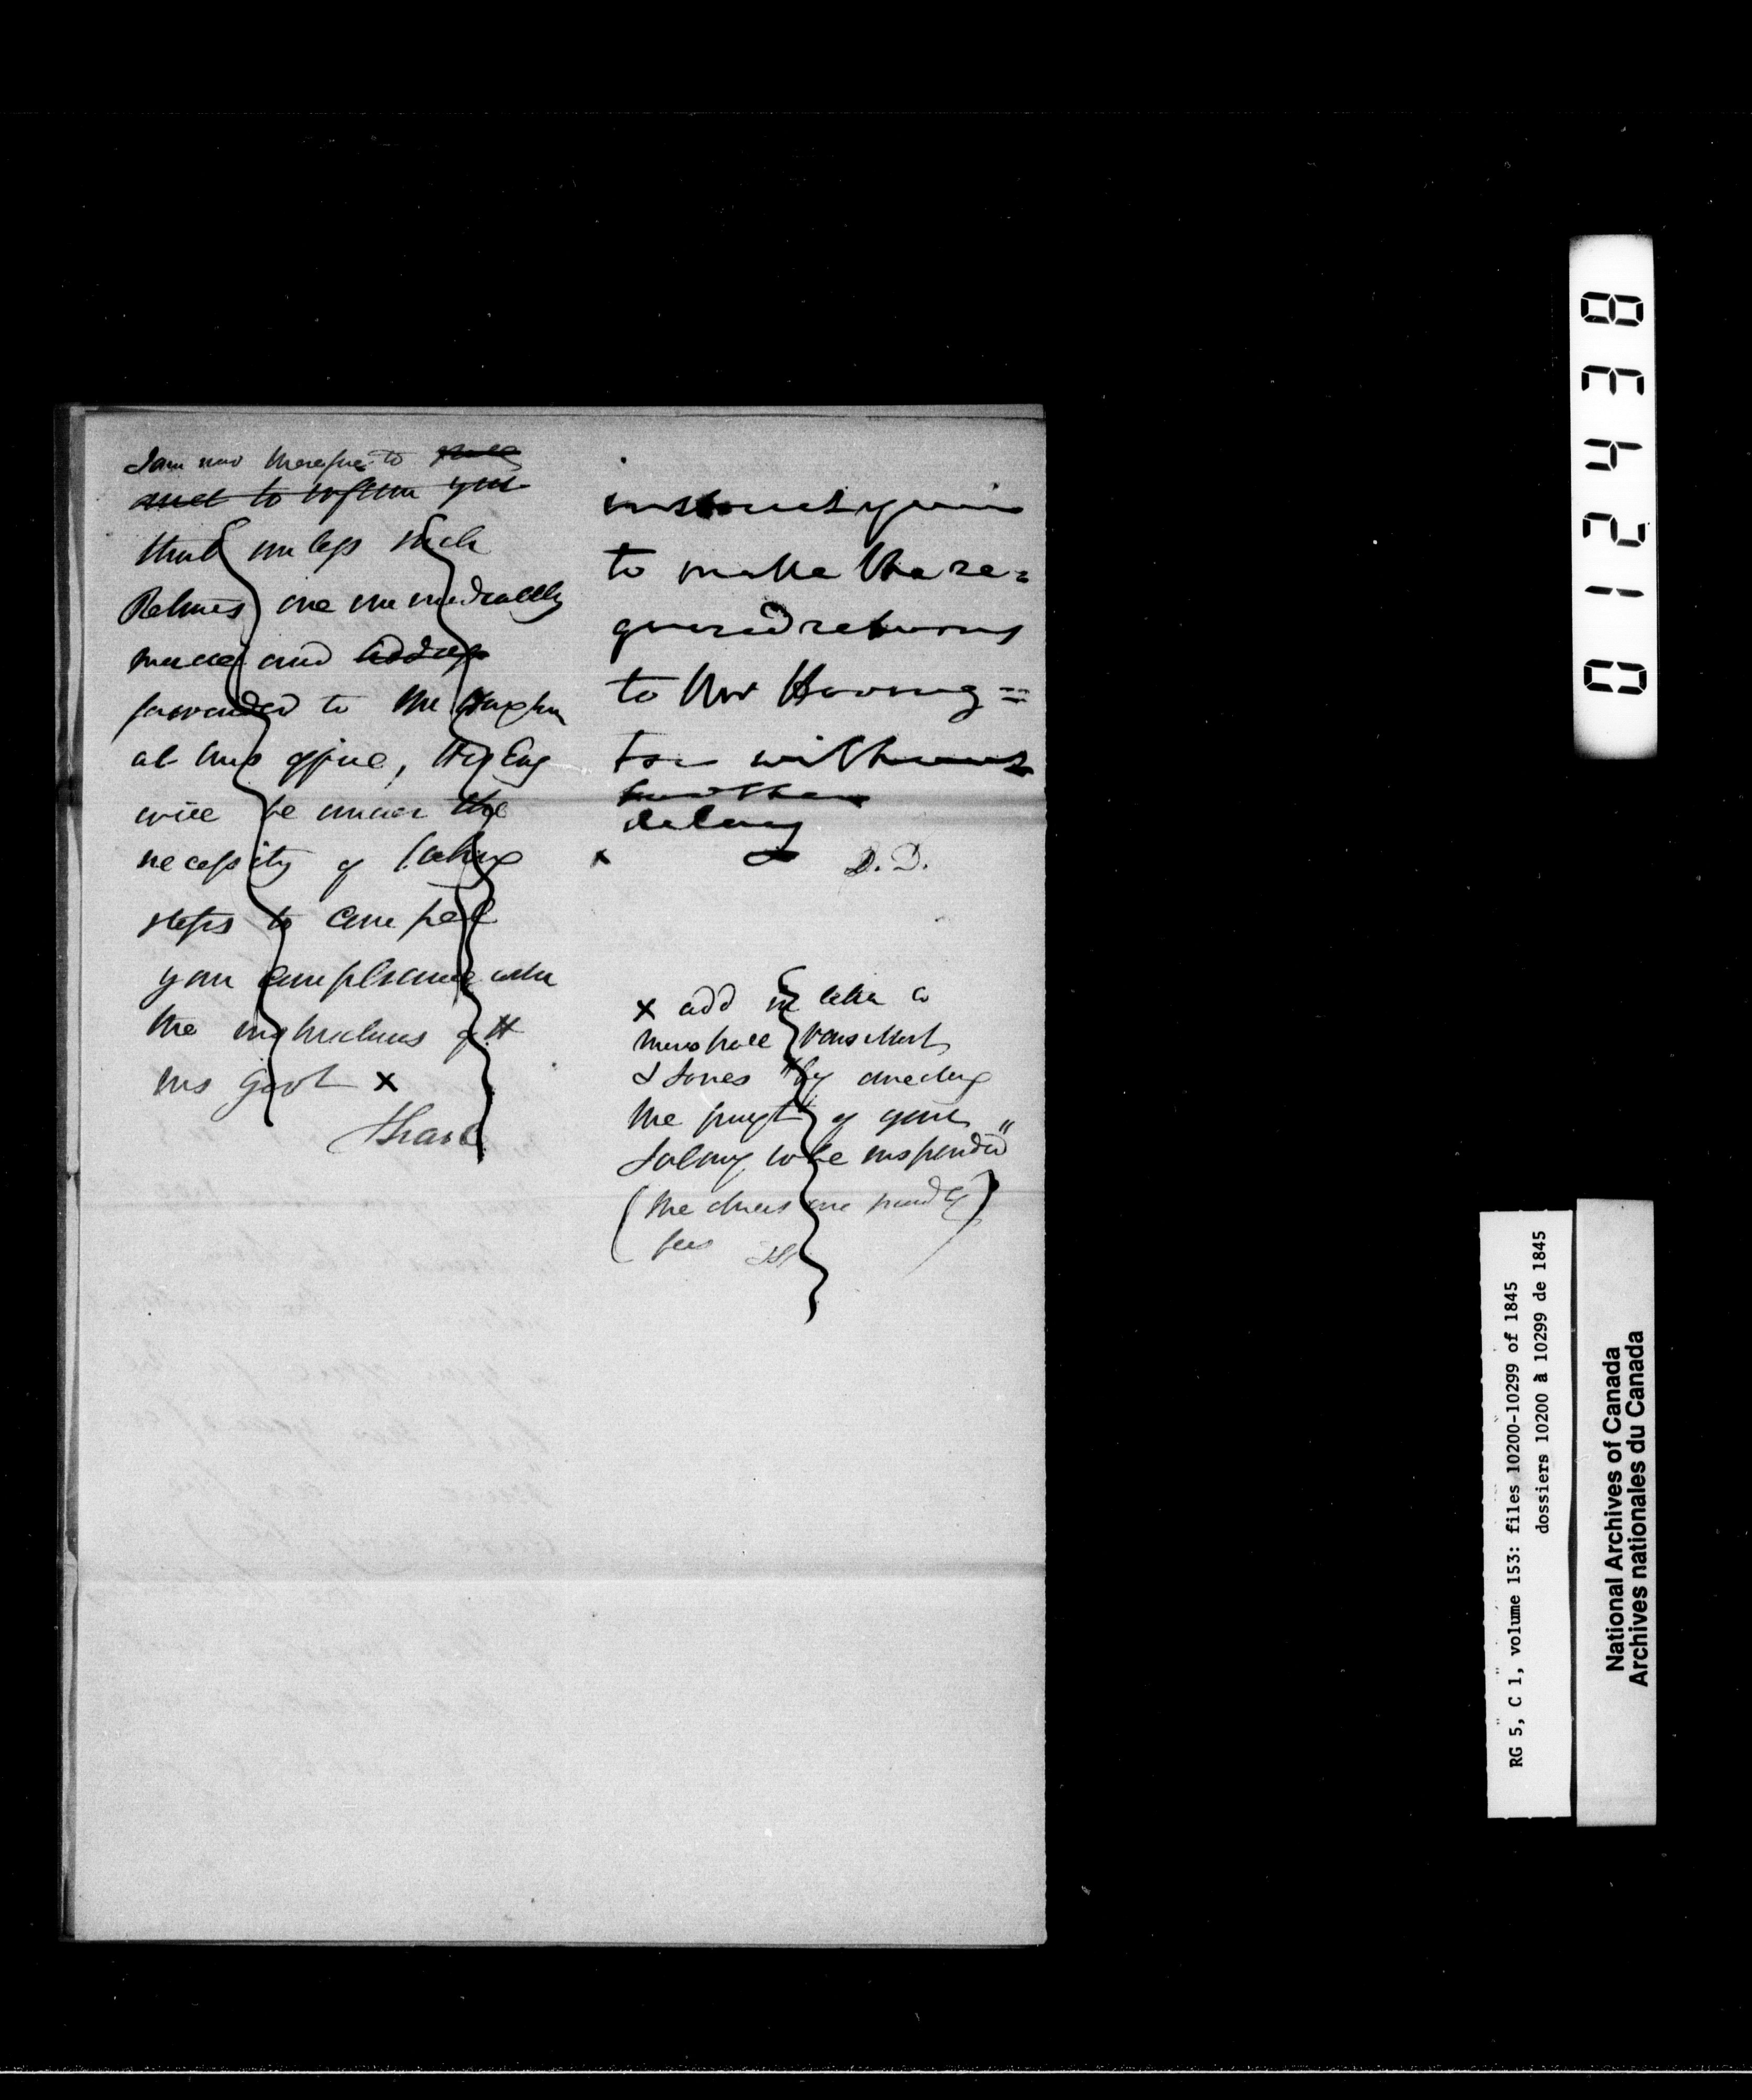 I am now therefore to
and to inform you
that unless such
Returns are immediately
made and
forwarded to Mr
at this office, His Exy
will be under the
necessity of taking
steps to compel
your compliance with
the instructions of H
ms Govt x
I have
instruct you
to make the re=
quired returns
to Mr Haring=
ton without
further
delay
x D. D.
x add in letter to
"by directing
the paymt of your
Salary to be suspended"
(the others are paid by
fees
012438
RG 5, C 1, volume 153: files 10200-10299 of 1845
dossiers 10200 à 10299 de 1845
National Archives of Canada
Archives nationales du Canada